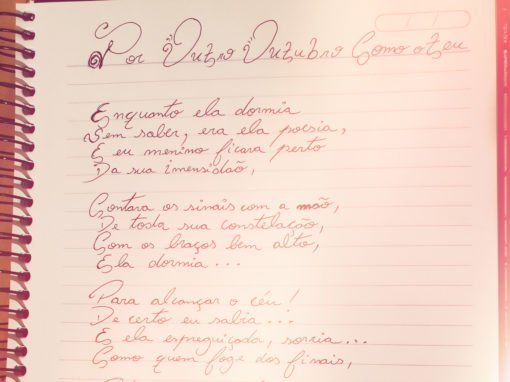 Por Outro Outubro Como o teu
Enquanto ela dormia
Sem saber, era ela poesia,
E eu menino ficara perto
Da sua imensidaõ,
Contara os sinais com a mão,
De toda sua constelação,
Com os braços bem alto,
Ela dormia...
Para alcançar o céu!
De certo eu sabia...
E ela espreguiçada, sorria...
Como quem foge dos finais,